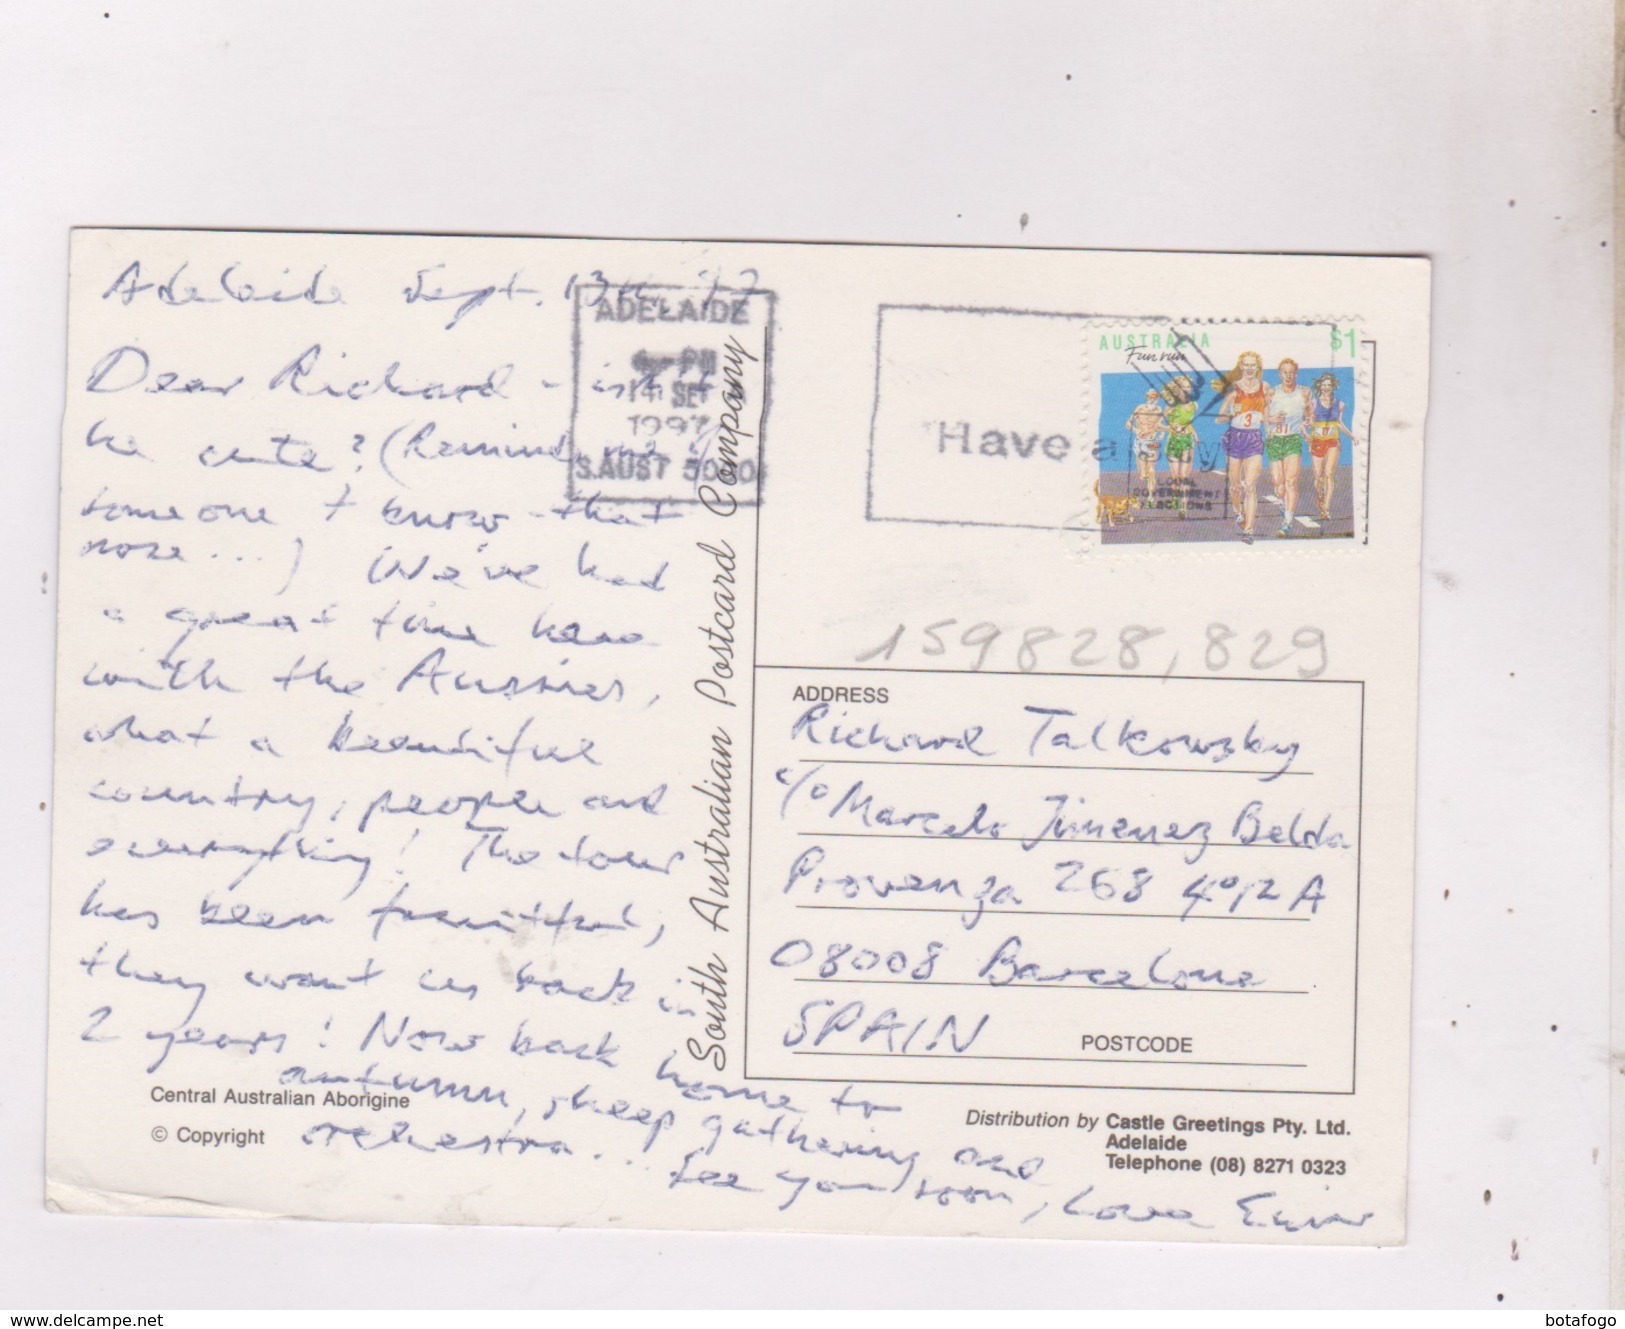 Adelaide Sept. 13th 97
Dear Richard - isn't
he cute? (Reminds me of
someone I know - that
nose...) We've had
a great time here
with the Aussies,
what a beautiful
country, people and
everything! The tour
has been fruitful,
they want us back in
2 years! Now back home to
autumn, sheep gathering and
orchestra... See you soon, Love
Central Australian Aborigine
© Copyright
South Australian Postcard Company
ADELAIDE
PM
14 SET
1997
S.AUST 5000
Have a say
LOCAL
GOVERNMENT
ELECTIONS
AUSTRALIA $1
Fun run
3
81
159828,829
ADDRESS
Richard Talkowsky
c/o Marcelo Jimenez Belda
Provenza 268 4º 2ª A
08008 Barcelona
SPAIN
POSTCODE
Distribution by Castle Greetings Pty. Ltd.
Adelaide
Telephone (08) 8271 0323
www.delcampe.net
botafogo